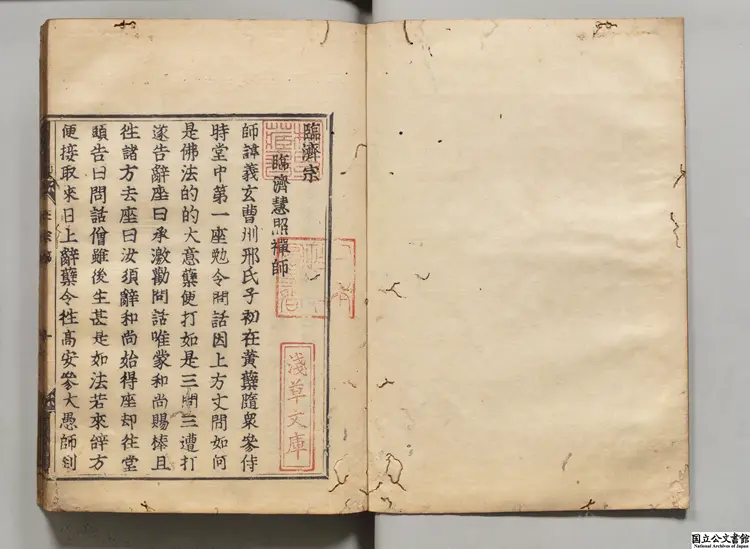 臨濟宗
臨濟慧照禪師
師諱義玄曹州邢氏子初在黃蘗隨衆參侍
時堂中第一座勉令問話因上方丈問如何
是佛法的的大意蘗便打如是三問三遭打
遂告辭座曰承激勸問話唯蒙和尚賜棒且
徃諸方去座曰汝須辭和尚始得座却徃堂
頭告曰問話僧雖後生甚是如法若來辭方
便接取來日上辭蘗令徃高安參大愚師到
淺草文庫
国立公文書館
National Archives of Japan